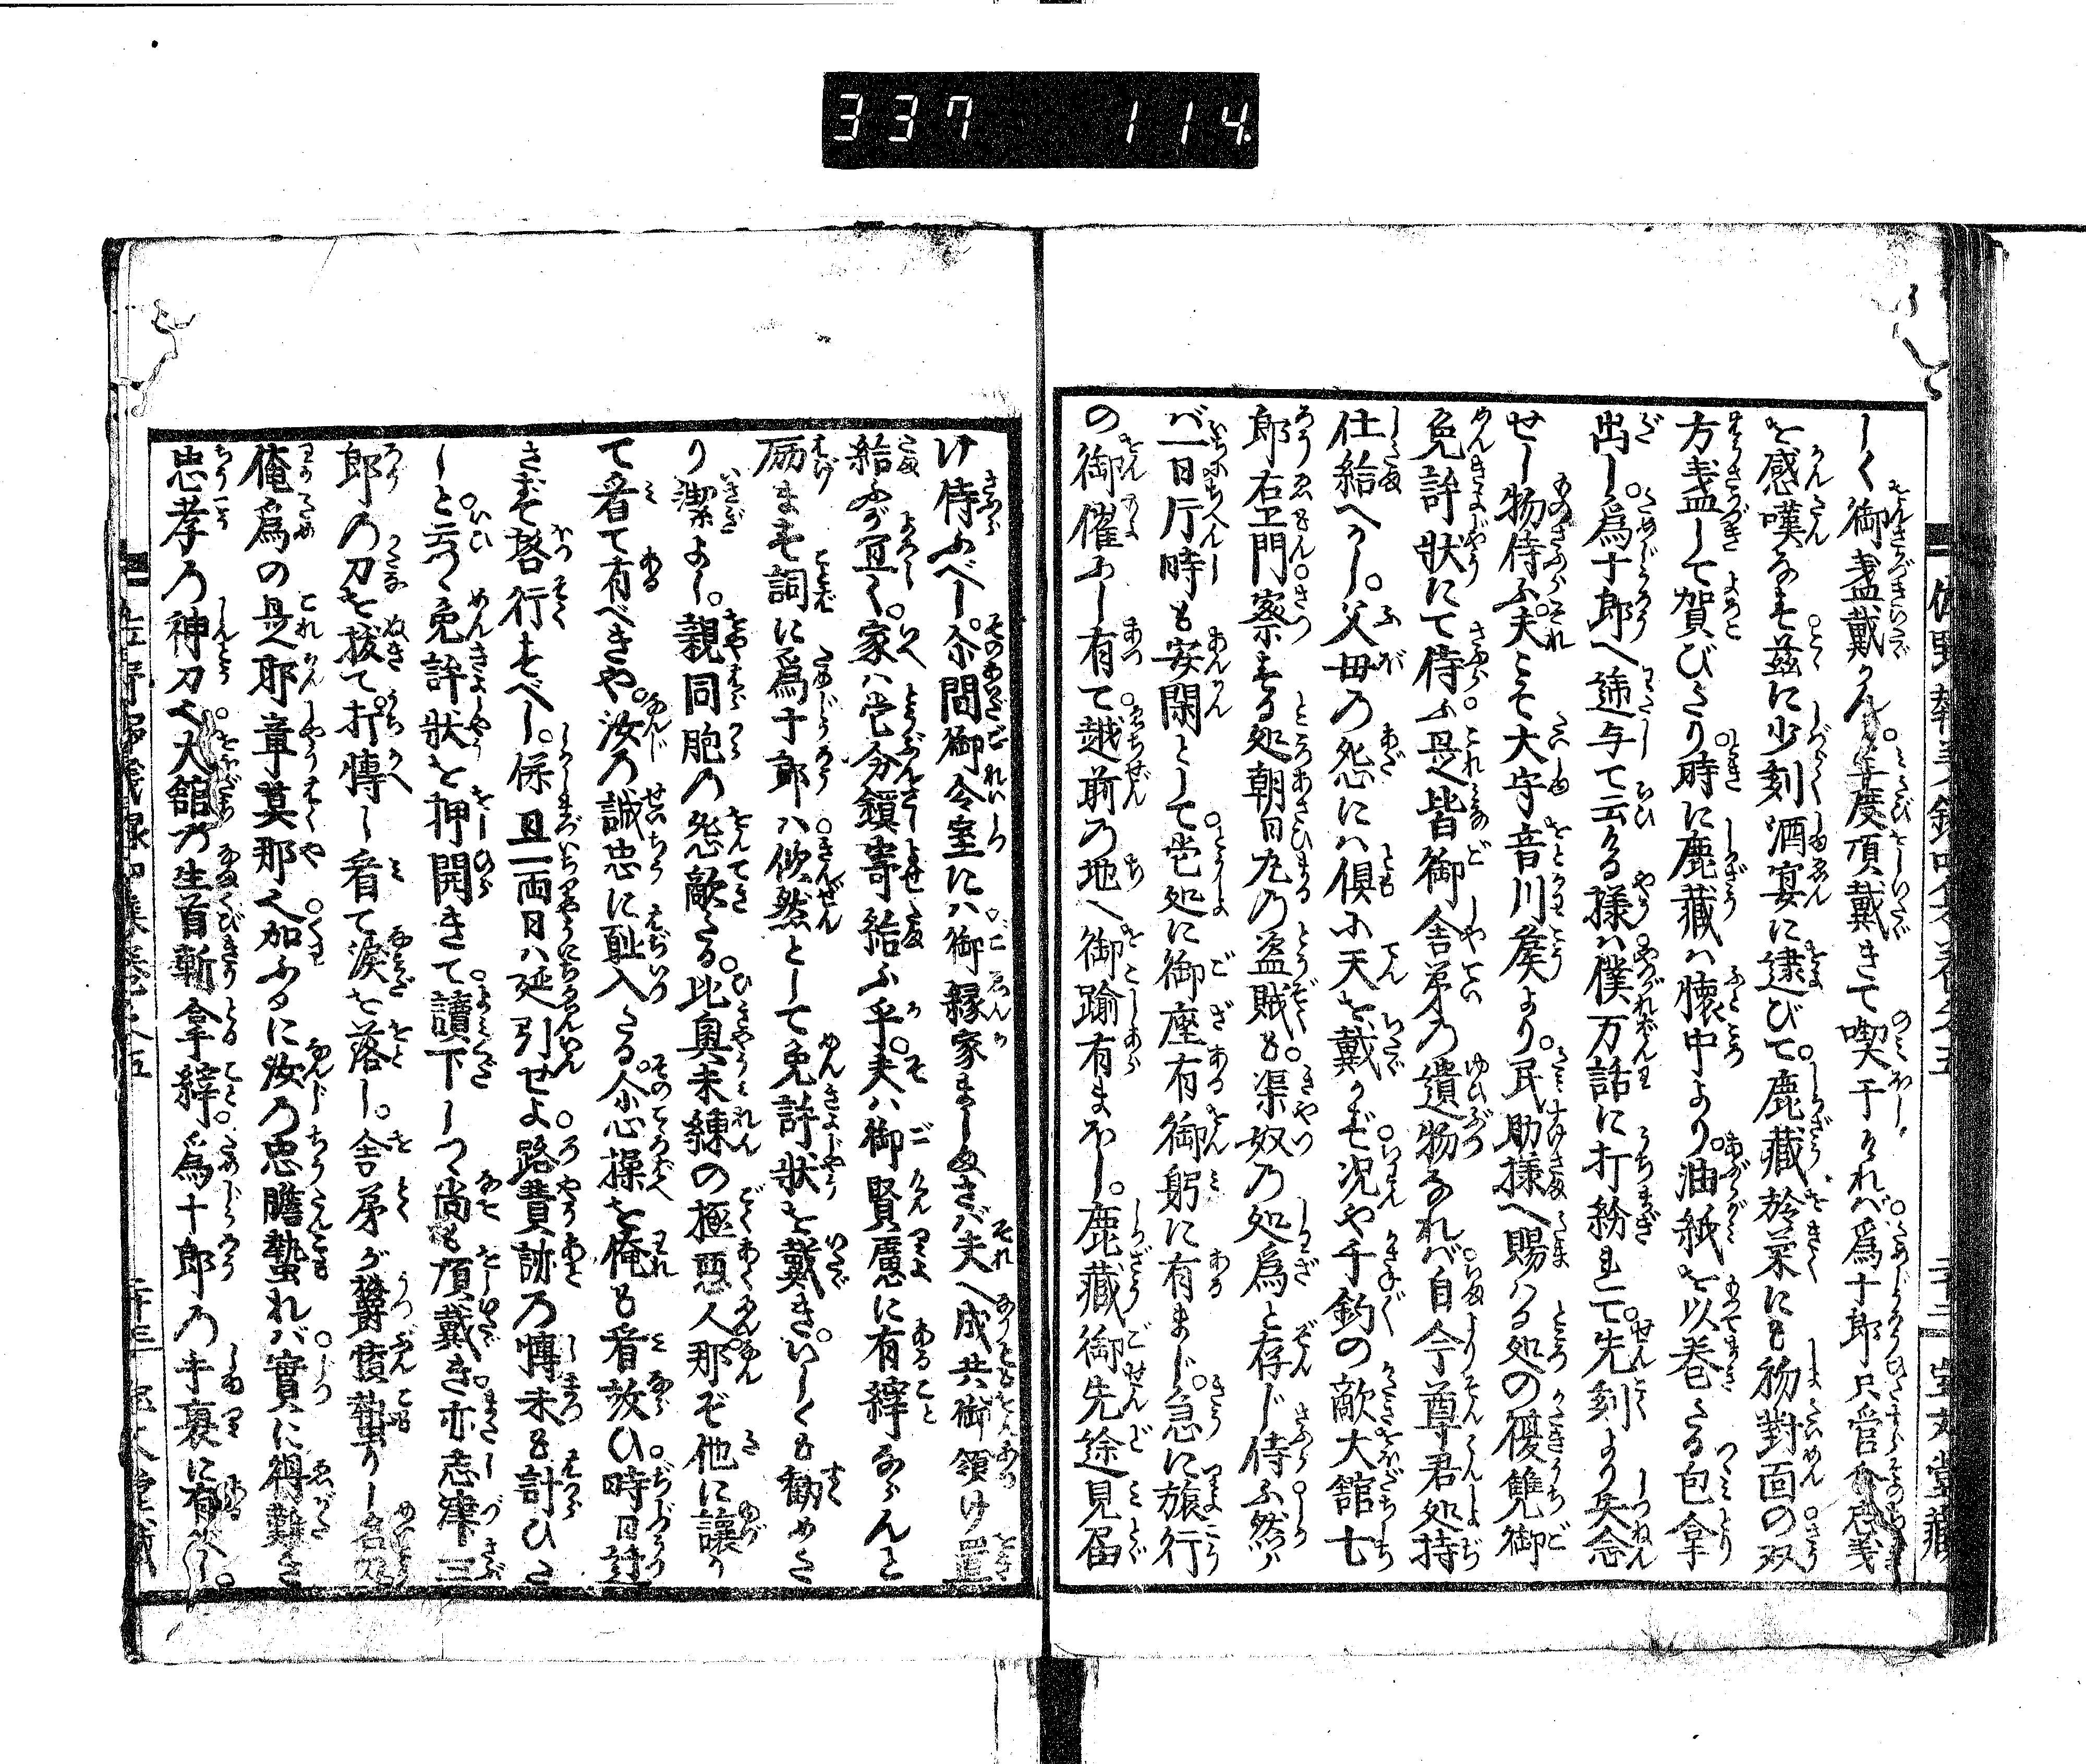 337 114
しく御盞戴かん三度頂戴きて喫干ければ爲十郎只管其忠義
を感嘆なせ茲に少刻酒宴に逮びて鹿藏於菜にも初對面の双
方盞して賀びたり時に鹿藏ハ懐中より油紙を以巻たる包拿
出し爲十郎へ逓与て云ける様ハ僕万話に打紛まて先刻より失念
せし物侍ふ夫こそ大字音川矦より民助様へ賜ハる処の復雙御
免許状にて侍ふ是皆御舎弟の遺物なれば自今尊君処持
仕給へかし父母の怨にハ倶に天を戴かぞ况や千釣の敵大舘七
郎右エ門察する処朝日丸の盗賊も渠奴の処爲と存じ侍ふ然ら
ば一日片時も安閑として當処に御座有御躬に有まじ急に旅行
の御催ふし有て越前の地へ御踰有まほし鹿藏御先途見届
け侍ふべし尒間御令室にハ御縁家ましまさば夫へ成共御領け置
給ふが宜く家ハ當分鎖寄給ふ乎夫ハ御賢慮に有縡ならんと
励ませ詞に爲十郎ハ欣然として免許状を戴きいしくも勧めた
り潔よし親同胞の怨敵たる比奥未練の極悪人那ぞ他に譲り
て看て有べきや汝の誠忠に耻入たる尒心操を俺も看放ひ時日討
さまで啓行すべし併且一両日ハ延引せよ路費跡の慱末も計ひた
しと云つゝ免許状を押開きて讀下しつゝ尚も頂戴き亦志津三
郎の刀を抜て打慱し看て涙を落し舎弟が欝憤篭りし名刀
俺爲の是耶章莫那へ加ふるに汝の忠膽蟄れば實に得難き
忠孝の神刀へ大舘の生首斬拿縡爲十郎の手裏に有